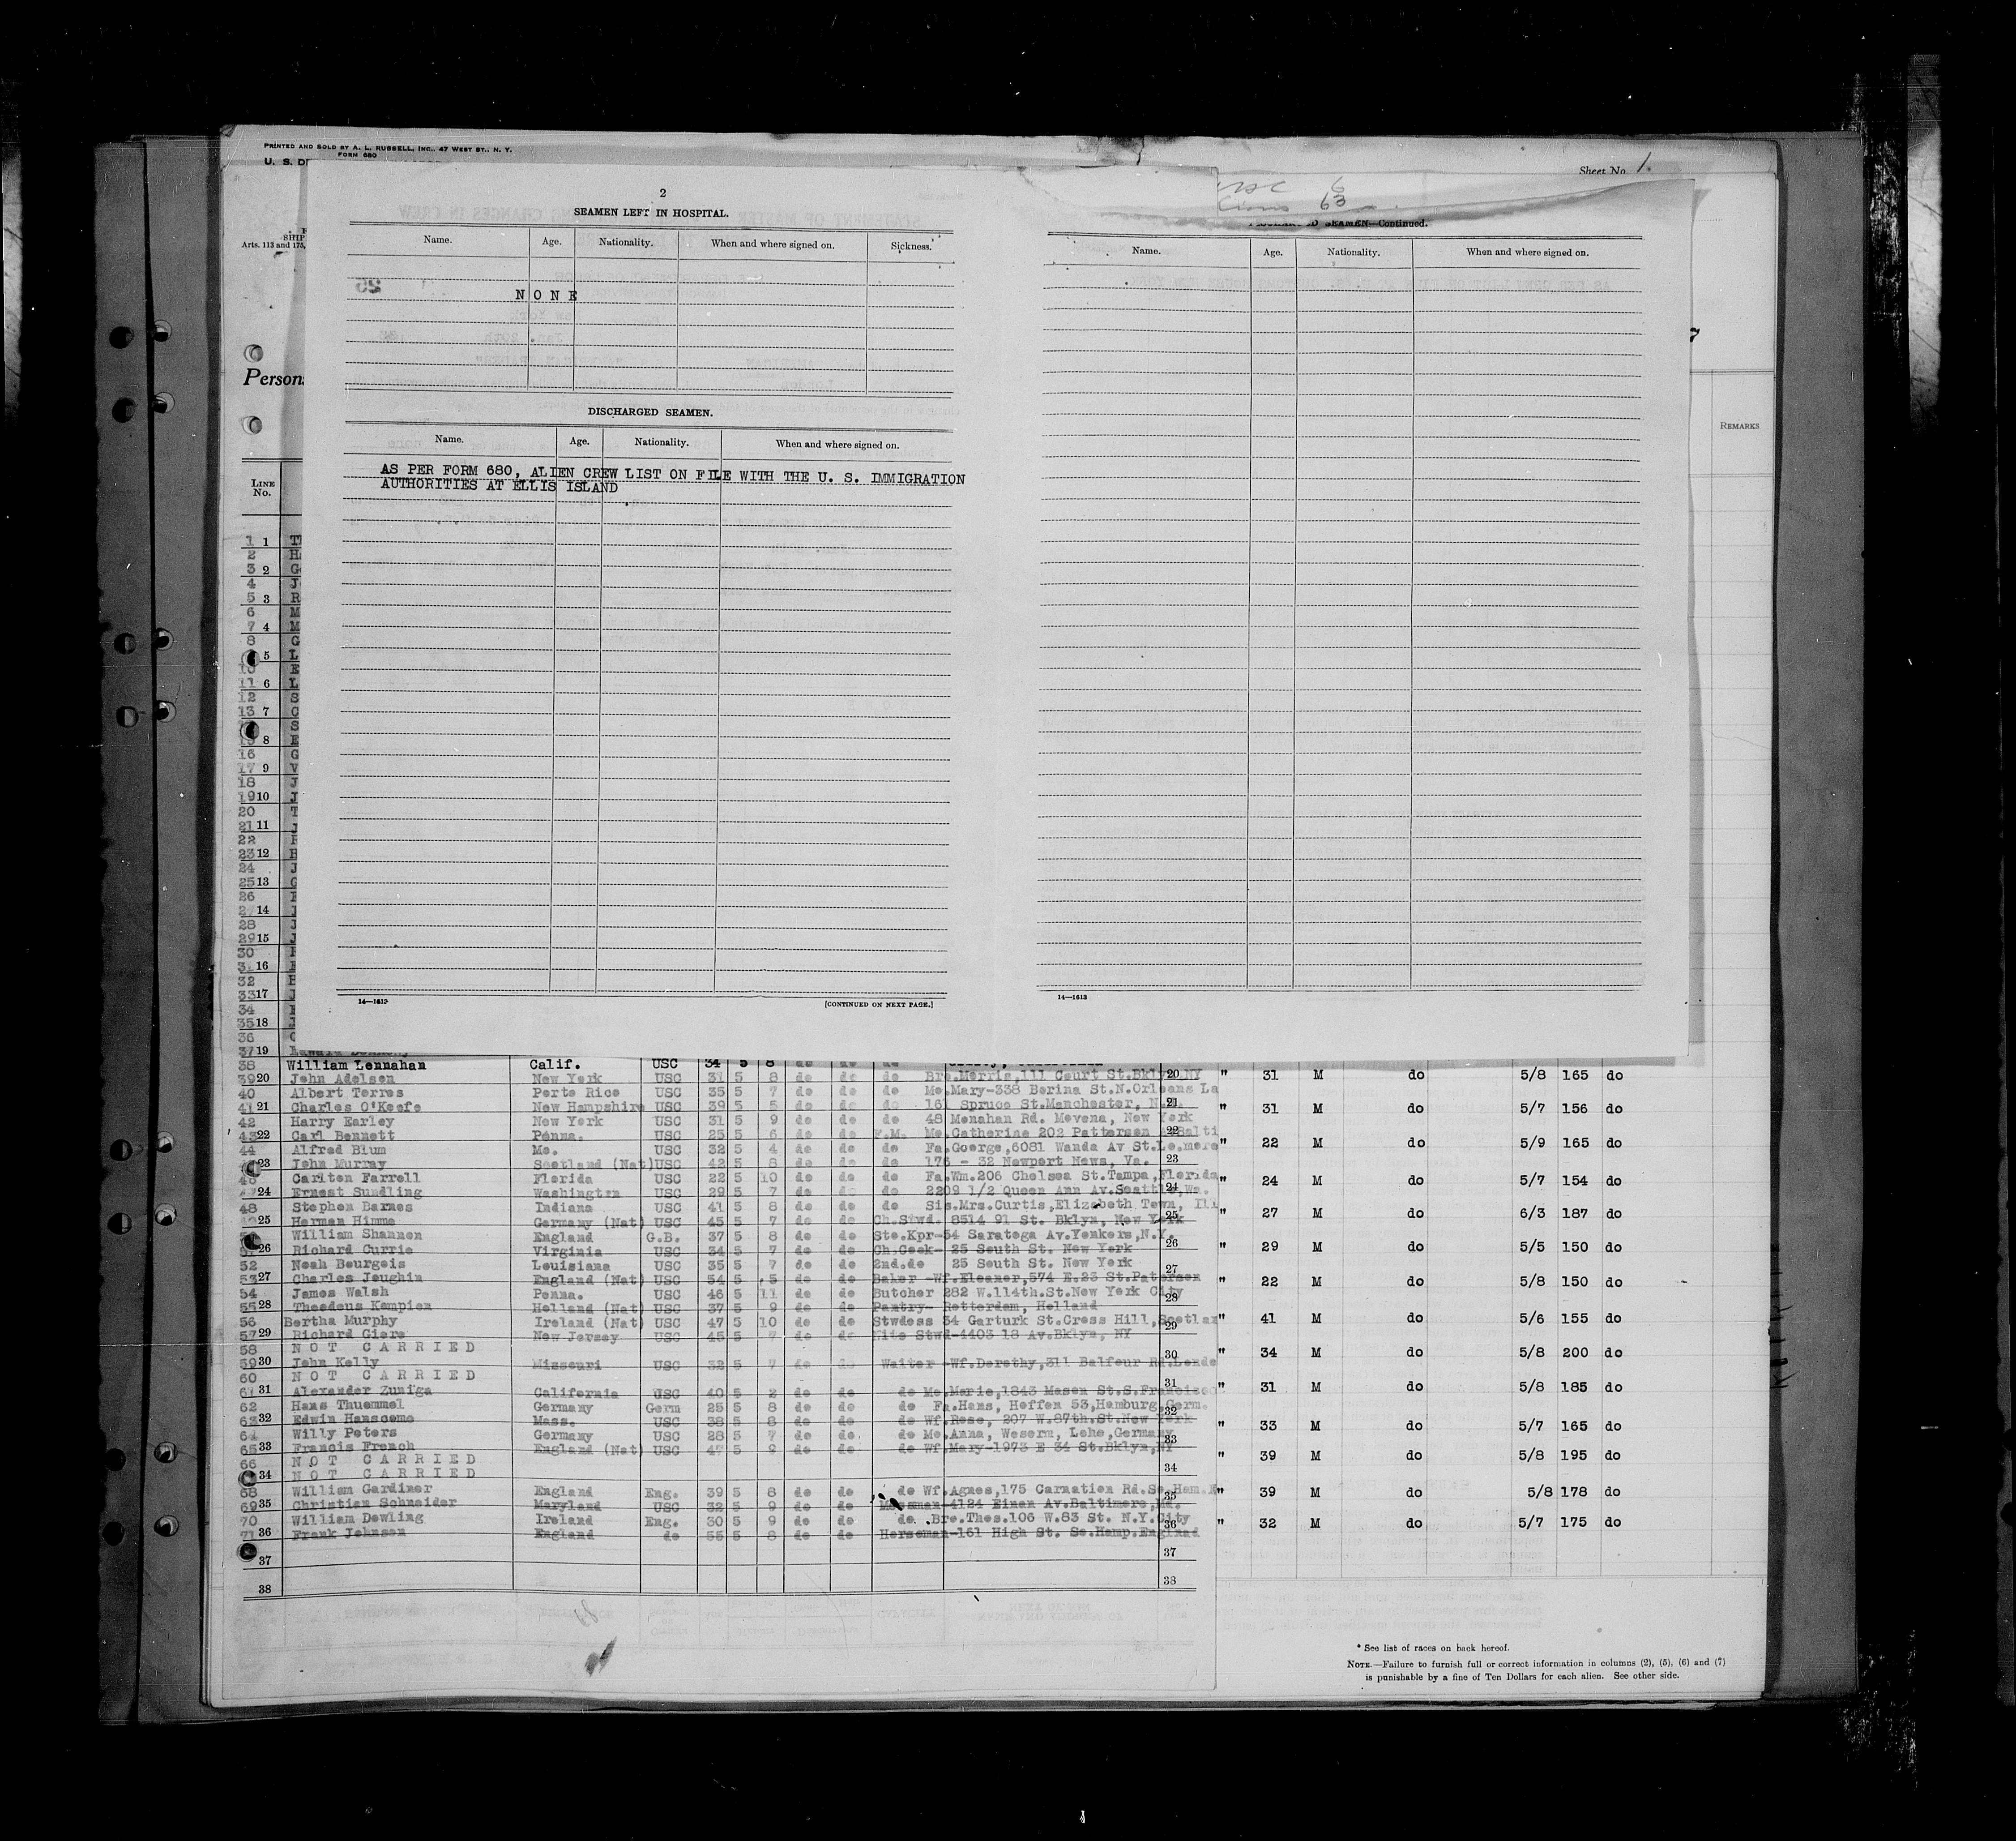 PRINTED AND SOLD BY A. L. RUSSELL, INC., 47 WEST ST., N. Y.
FORM 680
U. S. DE
Sheet No. 1.
6
63
SHIP
Arts. 113 and 175,
Persons
LINE No.
REMARKS
2
SEAMEN LEFT IN HOSPITAL.
Name. Age. Nationality. When and where signed on. Sickness.
NONE
DISCHARGED SEAMEN.
Name. Age. Nationality. When and where signed on.
AS PER FORM 680, ALIEN CREW LIST ON FILE WITH THE U. S. IMMIGRATION
AUTHORITIES AT ELLIS ISLAND
14—1613
[CONTINUED ON NEXT PAGE.]
SEAMEN—Continued.
Name. Age. Nationality. When and where signed on.
14—1613
38 William Lennahan Calif. USC 34 5 8 do do do
39 20 John Adelsen New York USC 31 5 8 do do do Bro.Morris,111 Court St.Bklyn NY 20 " 31 M do 5/8 165 do
40 Albert Torres Porto Rico USC 35 5 7 do do do Mo.Mary-338 Berina St.N.Orleans La
41 21 Charles O'Keefe New Hampshire USC 39 5 5 do do do 161 Spruce St.Manchester, N. 21 " 31 M do 5/7 156 do
42 Harry Earley New York USC 31 5 9 do do do 48 Monahan Rd. Movena, New York
43 22 Carl Bennett Penna. USC 25 5 6 do do F.M. Mo.Catherine 202 Patterson Balti 22 " 22 M do 5/9 165 do
44 Alfred Blum Mo. USC 32 5 4 do do do Fa.George,6081 Wanda Av St.
23 John Murray Scotland (Nat) USC 42 5 8 do do do 176 - 32 Newport News, Va. 23
46 Carlton Farrell Florida USC 22 5 10 do do do Fa.Wm.206 Chelsea St.Tampa,Florida " 24 M do 5/7 154 do
24 Ernest Sundling Washington USC 29 5 7 do do do 2209 1/2 Queen Ann Av.Seattle,Wa. 24
48 Stephen Barnes Indiana USC 41 5 8 do do do Sis.Mrs.Curtis,Elizabeth Town, Ill " 27 M do 6/3 187 do
25 Herman Himme Germany (Nat) USC 45 5 7 do do Ch.Stwd. 8514 91 St. Bklyn, New York 25
William Shannon England G.B. 37 5 8 do do Sto.Kpr-54 Saratoga Av.Yonkers,N.Y.
26 Richard Currie Virginia USC 34 5 7 do do Ch.Cook- 25 South St. New York 26 " 29 M do 5/5 150 do
52 Noah Bourgois Louisiana USC 35 5 7 do do 2nd.do 25 South St. New York
53 27 Charles Joughin England (Nat) USC 54 5 5 do do Baker -Wf.Eleanor,574 E.23 St.Paterson 27 " 22 M do 5/8 150 do
54 James Walsh Penna. USC 46 5 11 do do Butcher 282 W.114th.St.New York City
55 28 Theodeus Kempien Holland (Nat) USC 37 5 9 do do Pantry- Rotterdam, Holland 28
56 Bertha Murphy Ireland (Nat) USC 47 5 10 do do Stwdess 34 Garturk St.Cross Hill,Scotlan " 41 M do 5/6 155 do
57 29 Richard Giere New Jersey USC 45 5 7 do do Nite Stwd-4403 18 Av.Bklyn, NY 29
58 NOT CARRIED
59 30 John Kelly Missouri USC 32 5 7 do do Waiter -Wf.Dorothy,311 Balfour Rd.Londo 30 " 34 M do 5/8 200 do
60 NOT CARRIED
61 31 Alexander Zuniga California USC 40 5 2 do do do Mo.Marie,1843 Mason St.S.Francisco 31 " 31 M do 5/8 185 do
62 Hans Thuemmel Germany Germ 25 5 8 do do do Fa.Hans, Hoffen 53,Hamburg,Germ.
63 32 Edwin Hanscome Mass. USC 38 5 8 do do do Wf.Rose, 207 W.87th.St.New York 32 " 33 M do 5/7 165 do
64 Willy Peters Germany USC 28 5 7 do do do Mo.Anna, Weserm, Lehe,Germany
65 33 Francis French England (Nat) USC 47 5 9 do do do Wf.Mary-1973 E 34 St.Bklyn,NY 33 " 39 M do 5/8 195 do
66 NOT CARRIED
34 NOT CARRIED 34
68 William Gardiner England Eng. 39 5 8 do do do Wf.Agnes,175 Carnation Rd.So.Ham. " 39 M do 5/8 178 do
69 35 Christian Schneider Maryland USC 32 5 9 do do Messman-4124 Einan Av.Baltimore,Md. 35
70 William Dowling Ireland Eng. 30 5 9 do do do .Bro.Thos.106 W.83 St. N.Y.City " 32 M do 5/7 175 do
71 36 Frank Johnson England do 55 5 8 do do Horseman-161 High St. So.Hamp.England 36
37 37
38 38
* See list of races on back hereof.
NOTE.—Failure to furnish full or correct information in columns (2), (5), (6) and (7)
is punishable by a fine of Ten Dollars for each alien. See other side.